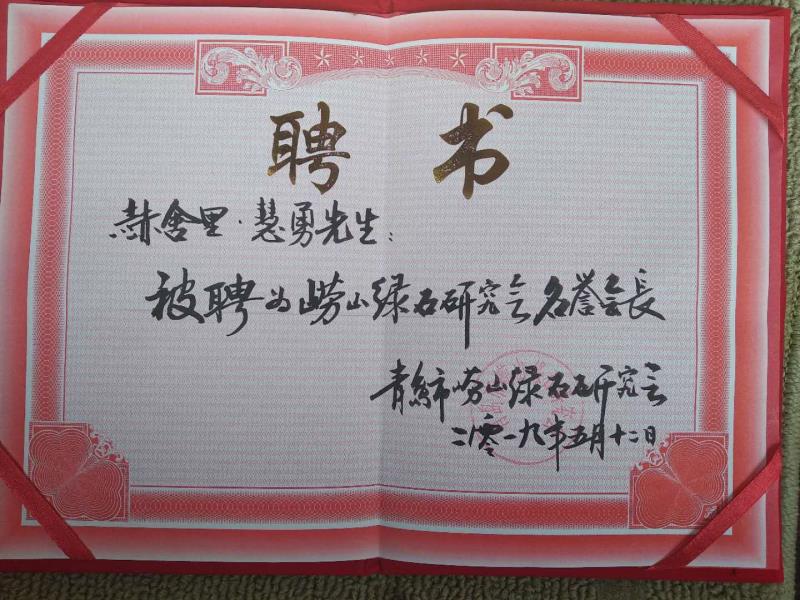 聘书
赫舍里·慧勇先生：
被聘为崂山绿石研究会名誉会長
青島市崂山绿石研究会
二零一九年五月十二日